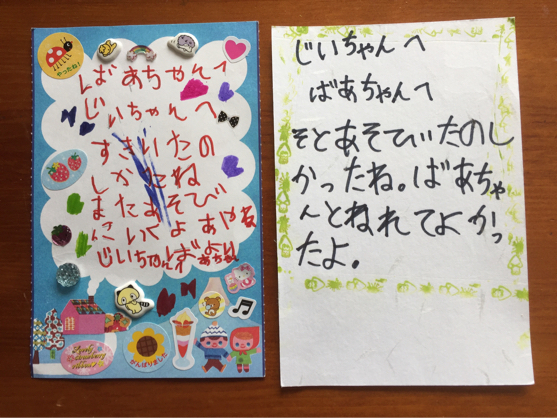 やったね!
ばあちゃんへ
じいちゃんへ
すきいたの
しかたね
またあそび
にいくよ
じいちゃん
がんばりました
じいちゃんへ
ばあちゃんへ
そとあそびたのし
かったね。ばあちゃ
んとねれてよかっ
たよ。